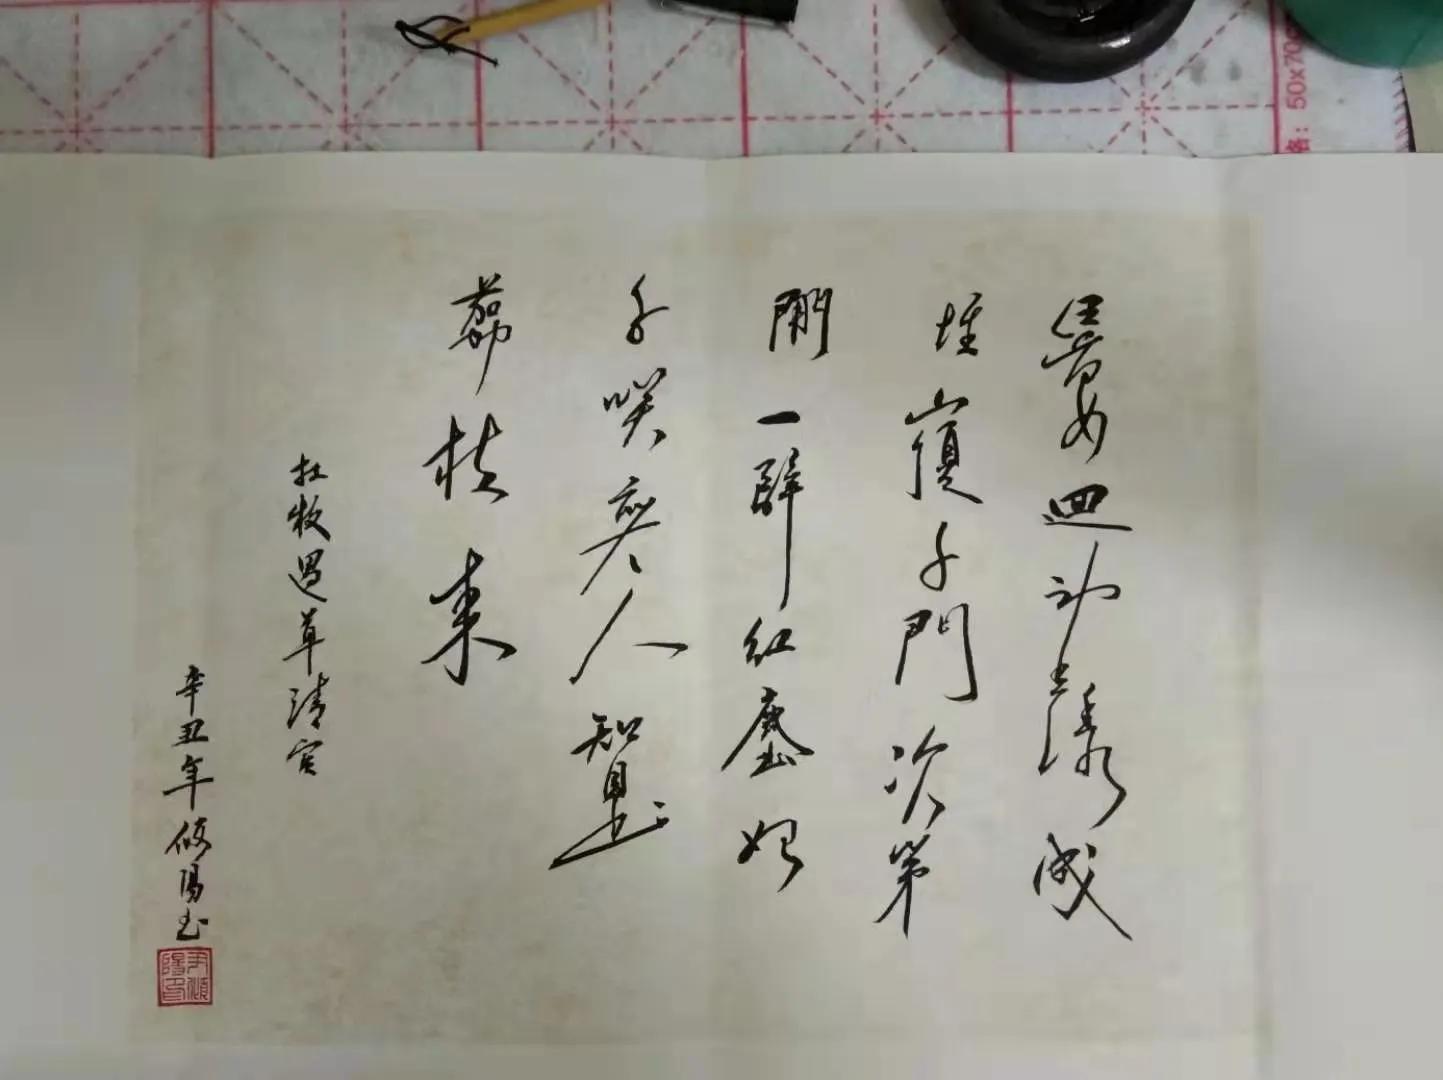 長安迴望繡成
堆山頂千門次第
開一騎紅塵妃
子咲無人知是
荔枝來
杜牧過華清宮
辛丑年陽书
格：50x70